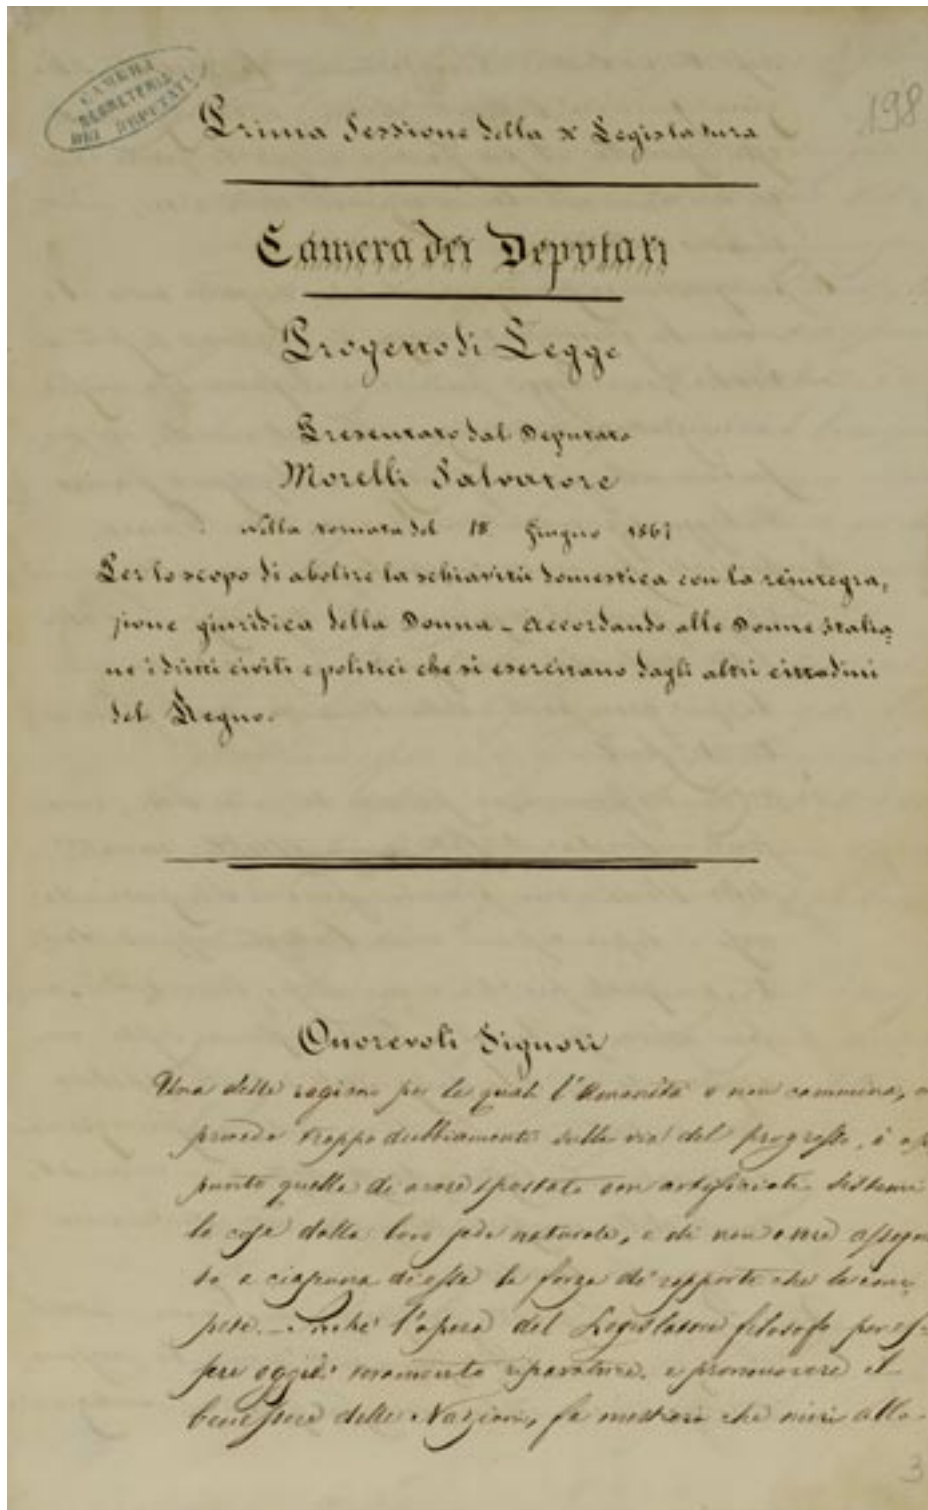 CAMERA
SEGRETERIA
DEI DEPUTATI
198
Prima Sessione della X Legislatura
Camera dei Deputati
Progetto di Legge
Presentato dal Deputato
Morelli Salvatore
nella tornata del 18 Giugno 1867
Per lo scopo di abolire la schiavitù domestica con la reintegra,
zione giuridica della Donna - Accordando alle Donne Italia,
ne i dritti civili e politici che si esercitano dagli altri cittadini
del Regno.
Onorevoli Signori
Una delle ragioni per le quali l'Umanità o non cammina, o
procede troppo dubbiamente sulla via del progresso, è ap
punto quella di avere spostate con artifiziati sistemi
le cose dalla loro sede naturale, e di non avere assegna
to a ciascuna di esse la forza di rapporto che le com,
pete. - Perché l'opera del Legislatore filosofo per es,
sere oggidì veramente riparatrice, e promuovere il
benessere delle Nazioni, fa mestieri che miri allo
3